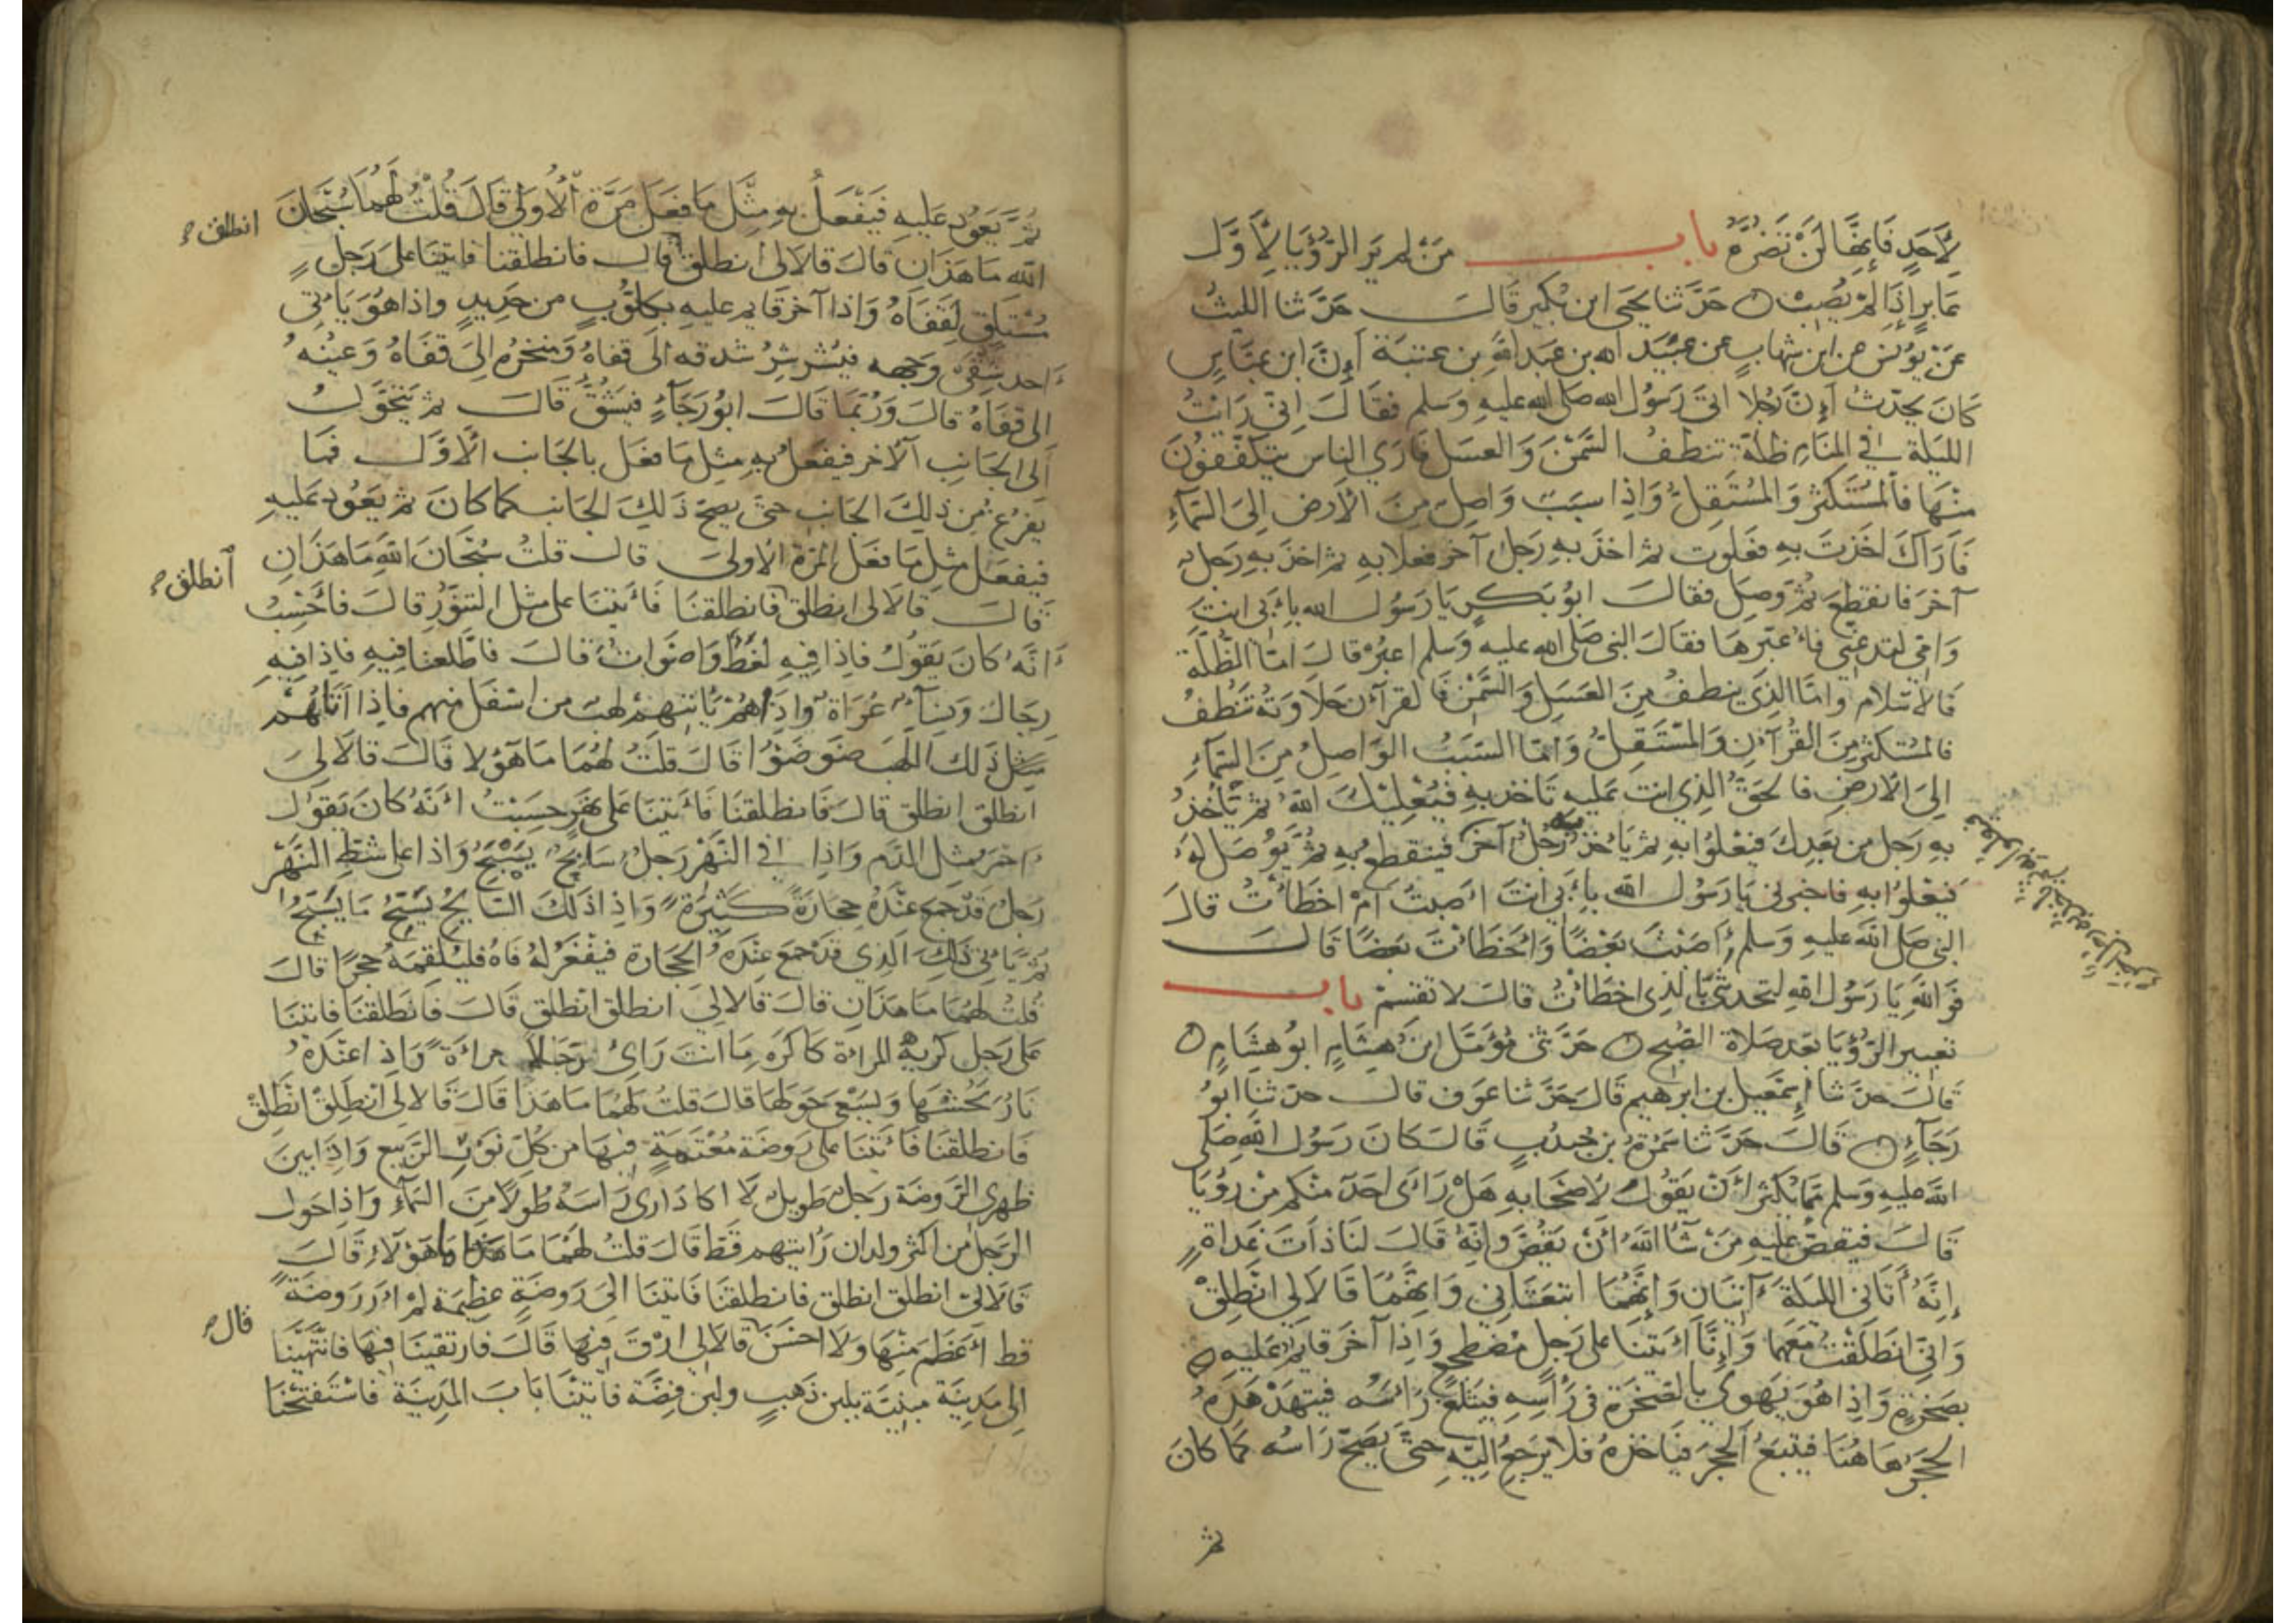 لِأَحَدٍ فَإِنَّهَا لَنْ تَضُرَّهُ باب مَنْ لم يَرَ الرُّؤْيَا لِأَوَّل
عَابِرٍ إِذَا لَمْ يُصِبْ حَدَّثنا يحيى ابن بُكَير قَالَ حَدَّثنا الليثُ
عَنْ يُونس عن ابن شهابٍ عن عُبَيْد الله بن عَبدِ اللهِ بن عتبَة أَنَّ ابن عبّاسٍ
كَانَ يحدّث أَنَّ رَجُلا اتى رَسُول الله صلى الله عليهِ وَسَلم فقالَ إِنّي رَايْتُ
الليلَة في المنَامِ ظلّةً تنطفُ السَّمْنَ وَالعسَل فَارَي الناس يتكفّفونَ
منْهَا فالمُسْتكثِرُ وَالمُسْتَقِلُّ وَإِذا سبَبٌ وَاصِلٌ مِنَ الأرض إِلَى السَّمَآءِ
فَأَرَاكَ اخَذتَ بهِ فعَلوت ثم اخذ بهِ رَجلٌ آخر فعلا به ثم اخذ بهِ رَجلٌ
آخر فانقطعَ ثمّ وُصِل فقالَ ابوُ بَكرٍ يَا رَسُول الله بأبي انتَ
وَامّي لتدعنّي فاعبرهَا فقالَ النبي صَلى الله عليه وَسَلم اعبُرْ قالَ امّا الظُّلّةُ
فَالاسْلام وامّا الذِي ينطفُ مِنَ العَسَلِ وَالسَّمْنِ فَالقرآن حَلاوَتهُ تَنْطُفُ
فالمُسْتكثِرُ مِنَ القُرآنِ وَالمسْتَقِلُّ وَامّا السّبَبُ الوَاصِلُ مِنَ السّمَآءِ
الى الارضِ فالحَقُّ الذِي انت عَليهِ تَاخذ بهِ فيُعْلِيْكَ اللهُ ثمّ يَأخذُ
بهِ رَجل من بَعدِكَ فيعْلُوا بهِ ثم يَاخذُ به رَجُلٌ آخر فينقطعُ بهِ ثمّ يُوصَل لهُ
فيعْلُوا بهِ فاخبرني يَا رَسُول الله بأبي انتَ اصبتُ امْ اخطَأتُ قالَ
النبي صَلى الله عَليهِ وَسَلم أصَبْتَ بَعْضًا وَاخْطَأتَ بَعضًا قَالَ
فوَاللهِ يَا رَسُول الله لتحدثنّي بالذي اخطَاتُ قالَ لا تقسِمْ باب
تعبير الرُّؤيَا بَعد صَلاة الصّبح حَدَّثني مُؤمّل ابن هشامٍ ابو هشامٍ
قالَ حدّثنا إسمعيل بن ابرهيم قالَ حَدَّثنا عوف قالَ حدّثنا ابوُ
رَجَآءٍ قَالَ حَدّثنا سَمُرة بن جُندُبٍ قالَ كانَ رَسُول اللهِ صَلى
الله عليهِ وَسلم ممّا يُكثِر أَنْ يَقُولَ لاصحَابهِ هَلْ رَأى احَدٌ منكم مِنْ رُؤيَا
قَالَ فيقصّ عَليهِ مَنْ شَآ اللهُ أَنْ يَقُصَّ وانّهُ قَالَ لنَا ذَاتَ غدَاةٍ
إِنّهُ أَتَاني الليلَة آتيَان وَإنّهمَا ابتعثَاني وَإنّهُمَا قَالا لي انْطلِقْ
وَاني انطلَقْتُ مَعهما وَإنَّا أَتينَا على رَجلٍ مُضطجعٍ وَإِذا آخَر قايمٌ عَليهِ
بصَخرَةٍ وَإِذا هُوَ يهوي بالصّخرَةِ في رَأسِهِ فيَثلغُ رَأسَهُ فيتهَدْهَدَهُ
الحَجَرُ هَاهُنا فيتبَعُ الحَجرَ فيَاخذهُ فلا يرجعُ اليْهِ حتّى يَصحّ رَاسُه كمَا كانَ
ثم
ثمّ يَعُود عَليهِ فَيَفْعَلُ بهِ مِثْلَ مَا فعَلَ مَرَّة الْأُولَى قَالَ قُلْتُ لَهُمَا سُبْحَانَ
انطلق
الله مَا هَذَانِ قالَ قالا لي انطلق قالَ فانطلقنا فاتينَا على رَجلٍ
مُسْتَلْقٍ لِقَفَاهُ وَإذا آخر قايم عليهِ بكلّوبٍ من حَديدٍ وإذا هُوَ يَاتي
احد شِقّي وَجهه فيُشرشِرُ شدقه الَى قفاهُ وَمنخرهُ الى قفَاهُ وَعينهُ
الى قفَاهُ قالَ وَرُبّمَا قَالَ ابوُ رَجَآءٍ فيَشُقُّ قَالَ ثم يتحَوّلُ
الى الجَانِبِ الآخر فيفعَلُ بهِ مِثل مَا فعَلَ بالجَانبِ الأوّل فمَا
يفرُغ مِن ذلِكَ الجَانب حتى يصحّ ذَلِكَ الجَانب كما كانَ ثم يَعُود عَليهِ
فيفعَل مثل مَا فعَل المرّة الاولى قالَ قلتُ سُبْحَانَ اللهِ مَا هَذَانِ
انطلق
قالَ قالا لي انطلق فانطلقنَا فَأتينَا على مثل التنّورِ قالَ فأحسِبُ
أنّه كانَ يَقُولُ فاذا فِيهِ لغَطٌ وَاصْوات قالَ فاطّلعنا فيهِ فاذا فيهِ
رِجَالٌ وَنِسَآءٌ عُرَاةٌ واذَا هُمْ يَاتيهمْ لهبٌ من اسْفل منهم فاذا أتَاهُمْ
ذَلك اللّهب ضوضَوْا قالَ قلتُ لهُمَا مَا هَؤلا قَالَ قالا لي
انطلق انطلق قالَ فانطلقنَا فَأتينَا عَلى نهرٍ حسِبْتُ أنّهُ كانَ يَقول
احْمَر مِثل الدّم وَاذا في النّهَرِ رَجلٌ سَابحٌ يَسْبَحُ وَاذا على شطّ النّهَر
رَجلٌ قدْ جمَع عنْدَهُ حجَارَةً كَثيرَةً وَاذا ذلكَ السّابحُ يَسْبَحُ مَا يَسْبَحُ
ثمّ يَأتي ذَلِكَ الّذِي قدْ جمَعَ عِنْدَهُ الحجَارة فيَفْغَرُ لهُ فَاهُ فليُلقِمهُ حَجرًا قالَ
قُلتُ لهُمَا مَا هذَانِ قالَ قالا لي انطلق انطلق قَالَ فانطلقنَا فاتينَا
على رَجلٍ كريهِ المرآة كاكرَه مَا انتَ رَايٍ رَجلا مرآةً وَإذا عنْدهُ
نَارٌ يَحُشهَا وَيسْعى حَولهَا قالَ قلتُ لهُمَا مَا هَذا قالَ قَالا لي انْطلِقْ انْطَلِقْ
فانطلقنَا فَأتينَا على رَوضَة مُعْتَمةٍ فيها مِن كُلّ نَور الرّبيع وَإذا بَينَ
ظهري الرّوضَة رَجلٌ طويلٌ لا اكادُ ارى رَاسَهُ طُولا مِنَ السّمَآءِ وَإذا حَول
الرّجل من اكثر ولدان رَأيتهم قَط قالَ قلتُ لهُمَا مَا هَذا مَا هَؤلآءِ قَالَ
قَالا لي انطلق انطلق فانطلقنَا فاتينَا الى رَوضَةٍ عظِيمَة لمْ أرَ رَوضَةً
قال
قط أعْظَم مِنْهَا وَلا احْسَنَ قالا لي ارْقَ فِيهَا قَالَ فارتقينَا فيهَا فانتهينَا
الى مَدينَة مَبنيّة بلبن ذَهبٍ ولبن فِضّة فأتينَا بَابَ المَدِينَة فاسْتفتحْنَا